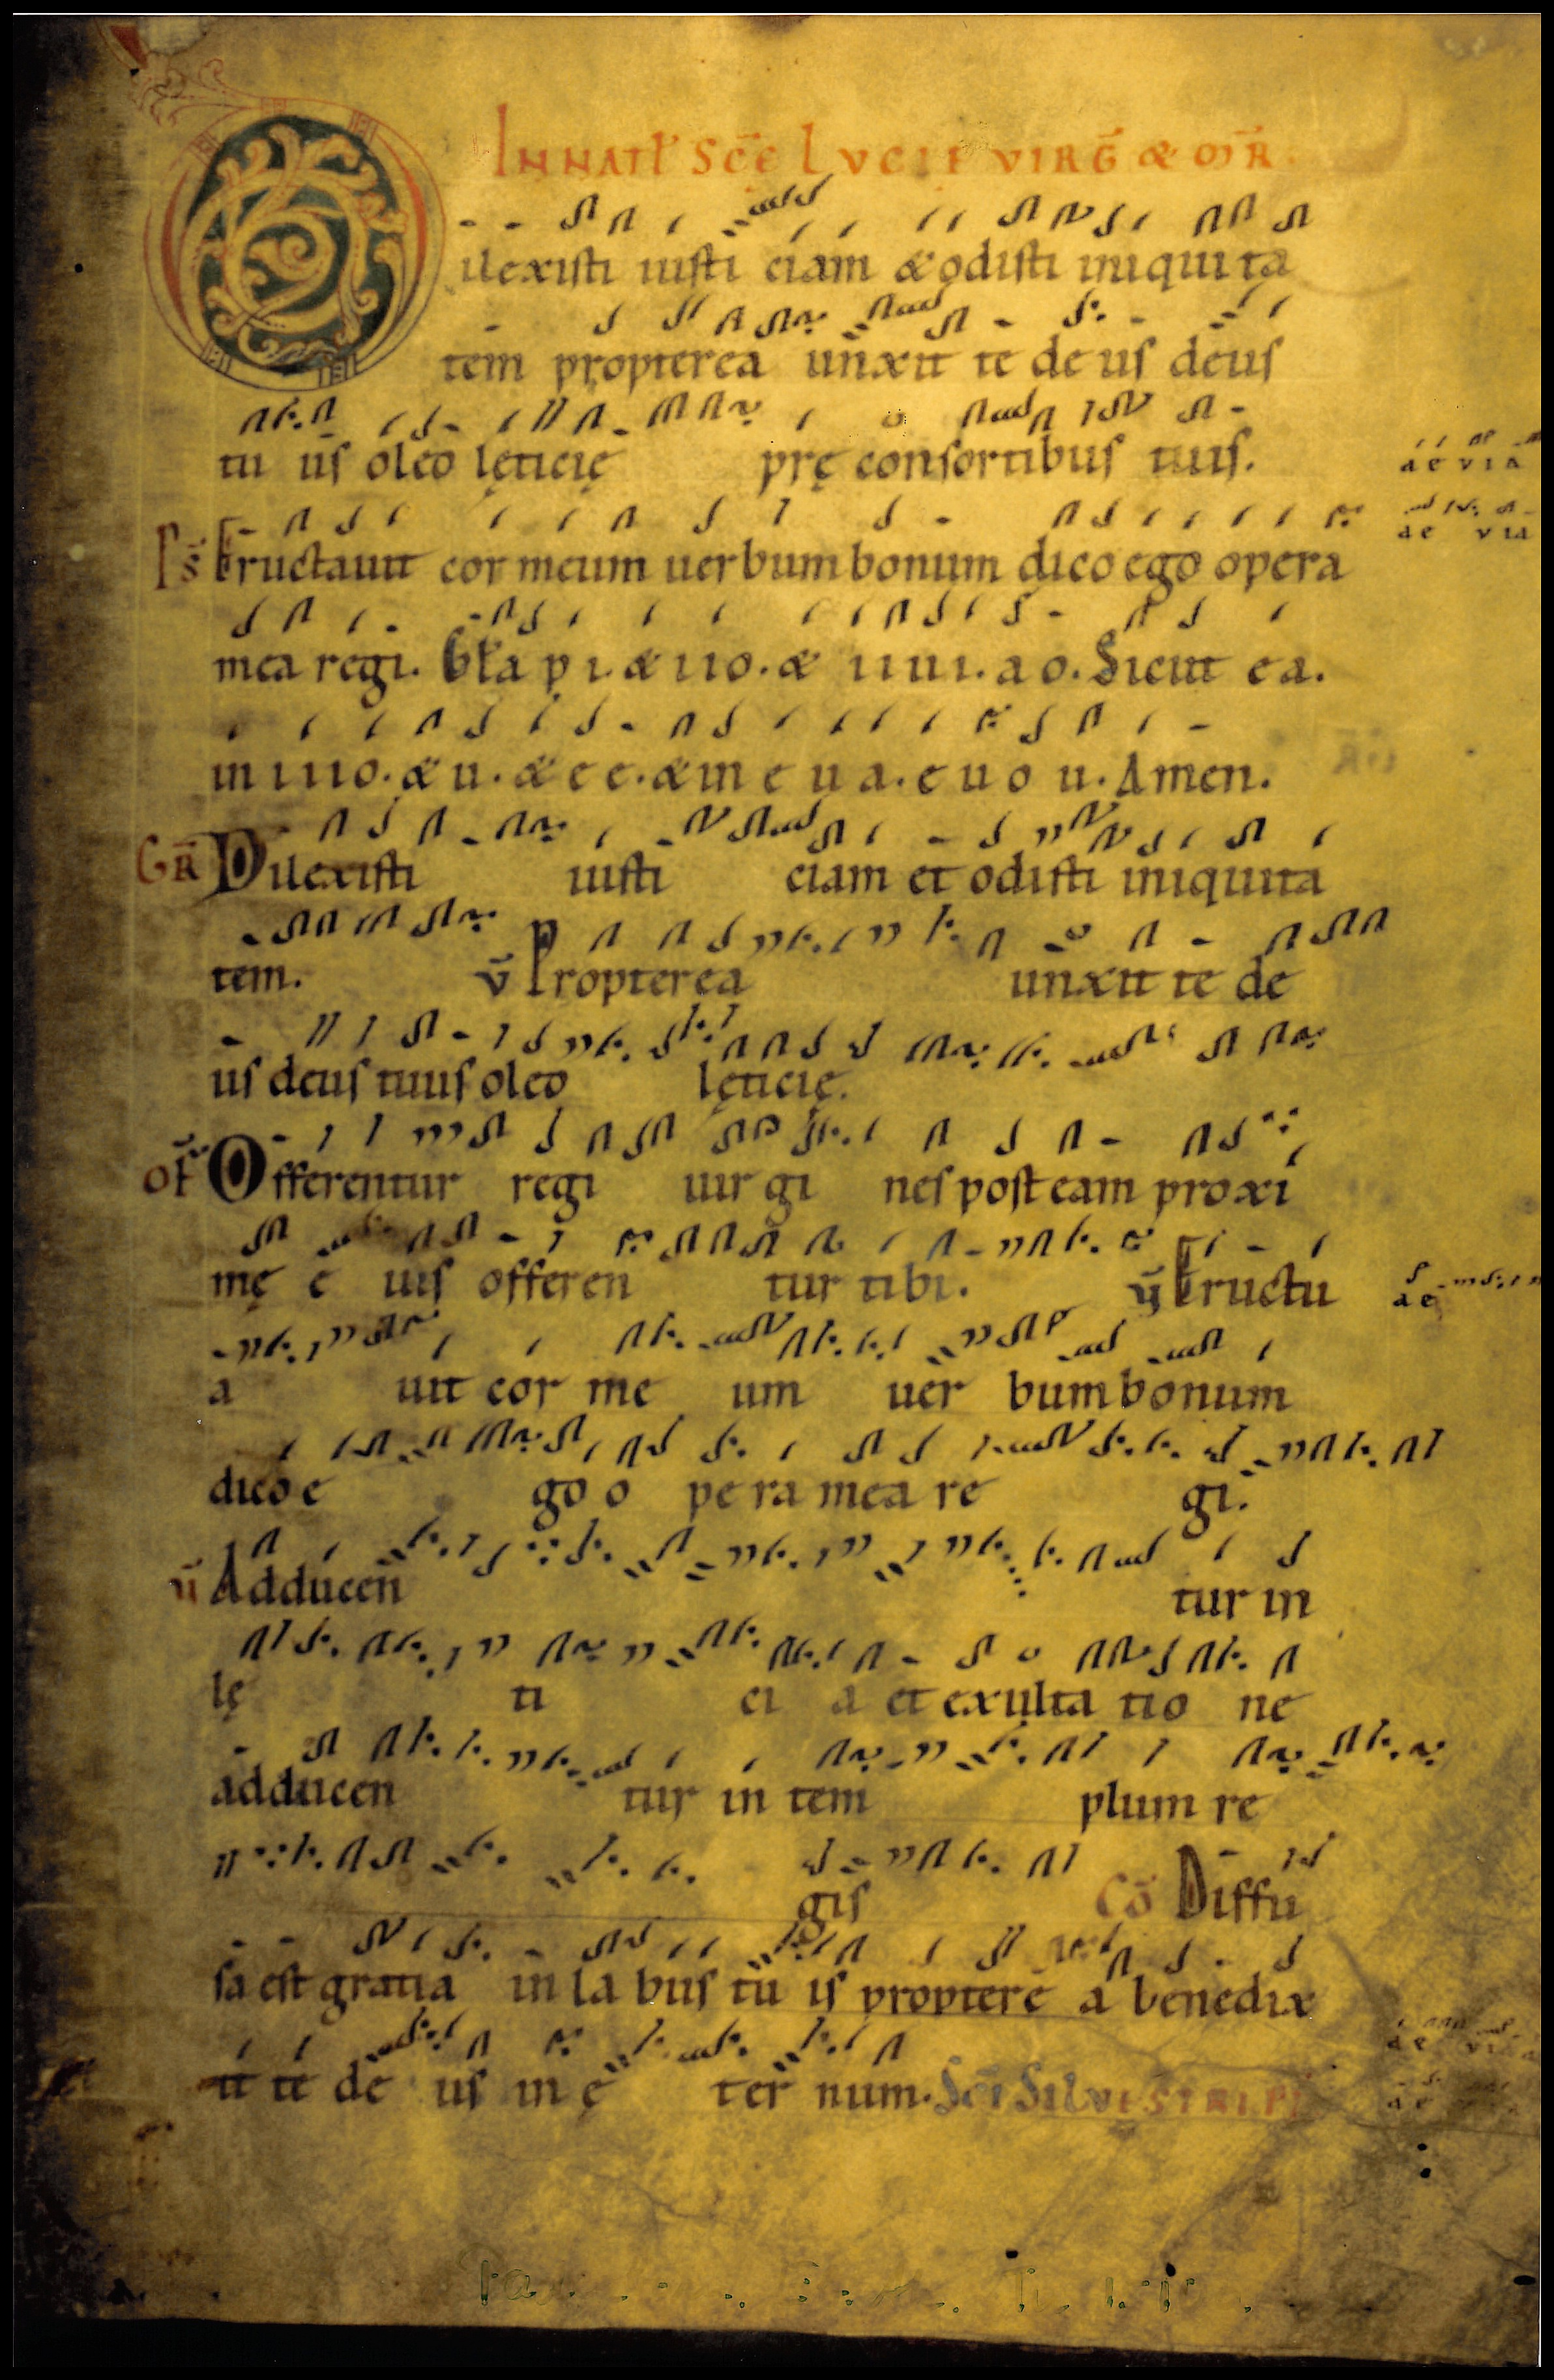 IN NATL' SCE LUCIE VIRG & MR.
Dilexisti iusti ciam & odisti iniquita
tem propterea unxit te de us deus
tu us oleo lęticię prę consortibus tuis.
a e v i a
Ps Eructauit cor meum uerbum bonum dico ego opera
a e v i a
mea regi. Gła p i. & i i o. & i i u i. a o. Sicut e a.
in i i i o. & u. & e e. & in e u a. e u o u. Amen.
GR Dilexisti iusti ciam et odisti iniquita
tem. v Propterea unxit te de
us deus tuus oleo lęticię.
OF Offerentur regi uir gi nes post eam proxi
mę e uis offeren tur tibi. v Eructu
a e
a uit cor me um uer bum bonum
dico e go o pe ra mea re gi.
v Adducen tur in
lę ti ci a et exulta tio ne
adducen tur in tem plum re
gis Cō Diffu
sa est gratia in la biis tu is proptere a benedix
it te de us in ę ter num. Sci Silvestri. P